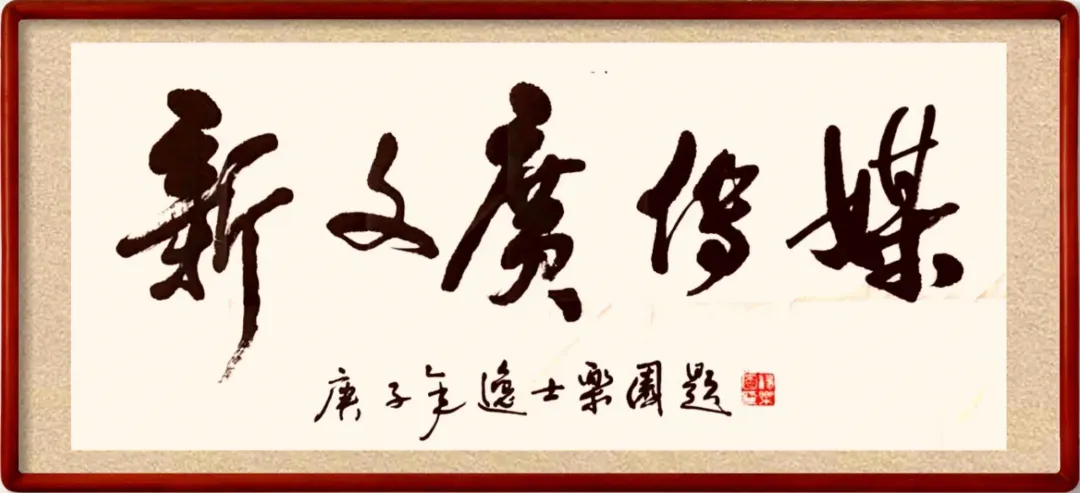 新文廣传媒
庚子年逸士樂園題